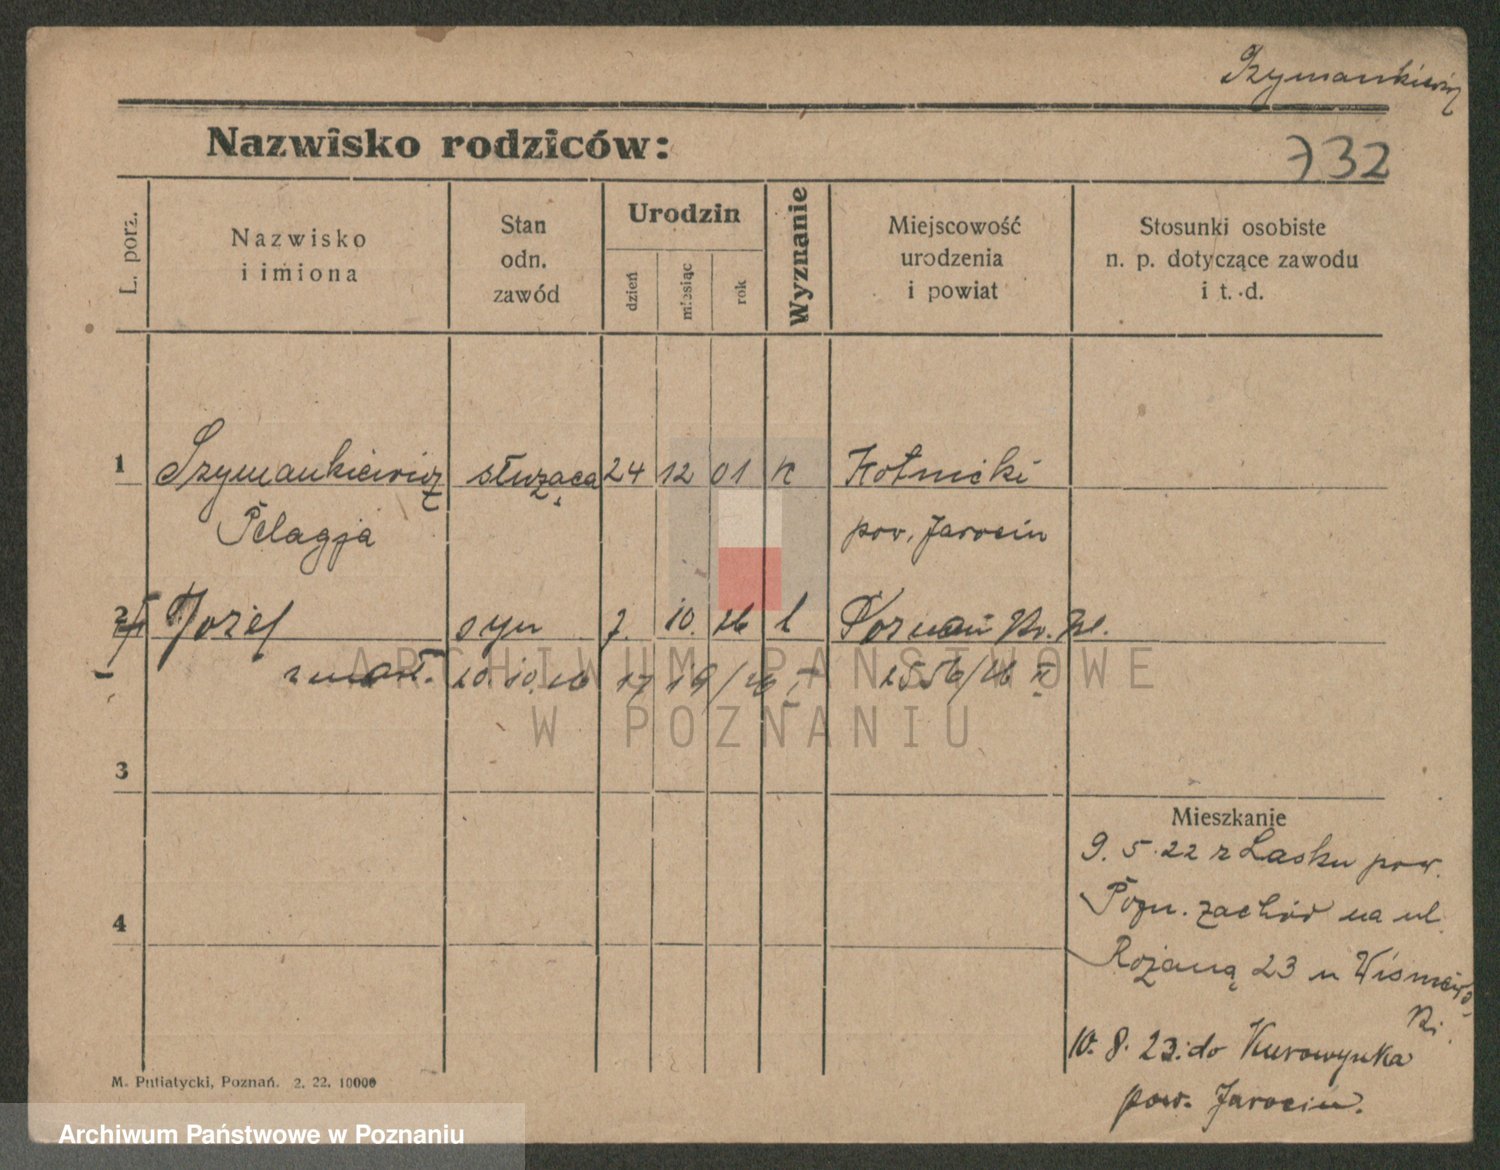 Szymankiewicz
Nazwisko rodziców:
732
L. porz.
Nazwisko
i imiona
Stan
odn.
zawód
Urodzin
dzień
miesiąc
rok
Wyznanie
Miejscowość
urodzenia
i powiat
Stosunki osobiste
n. p. dotyczące zawodu
i t. d.
1 Szymankiewicz służąca 24 12 01 k Kotnicki
Pelagja pow. Jarocin
2 Józef syn 7. 10. 26 Poznań
zmarł. 20.10.26 2556/26 II
ARCHIWUM PAŃSTWOWE
W POZNANIU
3
Mieszkanie
9. 5. 22 z Lasku pow.
Pozn. zachód na ul.
4
Różaną 23 u
10. 8. 23. do
pow. Jarocin.
M. Putiatycki, Poznań. 2. 22. 10000
Archiwum Państwowe w Poznaniu